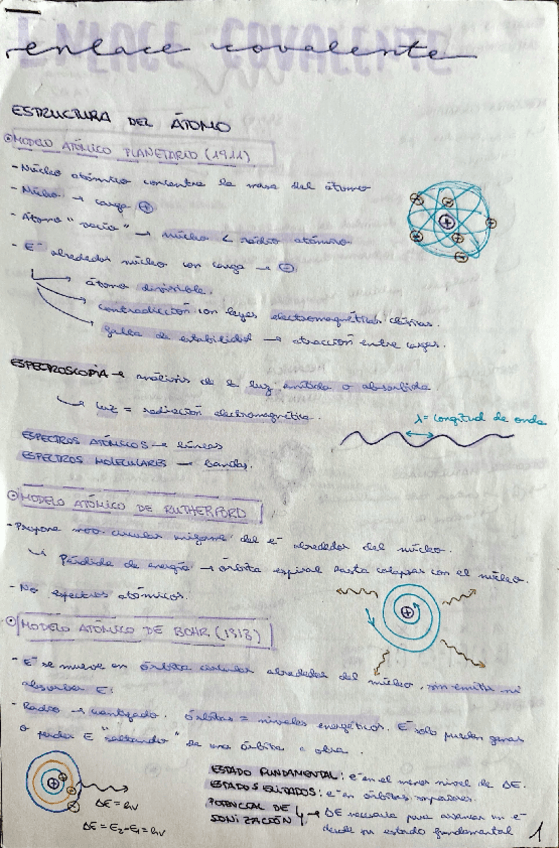 ENLACE COVALENTE
enlace covalente
ESTRUCTURA DEL ÁTOMO
MODELO ATÓMICO PLANETARIO (1911)
- Núcleo atómico concentra la masa del átomo
- Núcleo → carga ⊕
- Átomo "vacío" → núcleo < radio atómico
- E⁻ alrededor núcleo con carga → ⊖
átomo divisible.
contradicción con leyes electromagnéticas clásicas.
falta de estabilidad → atracción entre cargas.
ESPECTROSCOPÍA → análisis de la luz emitida o absorbida.
luz = radiación electromagnética.
λ = longitud de onda
ESPECTROS ATÓMICOS → líneas
ESPECTROS MOLECULARES → bandas.
MODELO ATÓMICO DE RUTHERFORD
- Propone mov. circular del e⁻ alrededor del núcleo.
Pérdida de energía → órbita espiral hasta colapsar con el núcleo.
- No espectros atómicos.
MODELO ATÓMICO DE BOHR (1913)
- E⁻ se mueve en órbita circular alrededor del núcleo, sin emitir ni
absorber E.
- Radio → cuantizado. órbitas = niveles energéticos. E⁻ solo pueden ganar
o perder E "saltando" de una órbita a otra.
ESTADO FUNDAMENTAL: e⁻ en el menor nivel de ΔE.
ESTADOS EXCITADOS: e⁻ en órbitas superiores.
POTENCIAL DE IONIZACIÓN → ΔE necesaria para arrancar un e⁻
desde su estado fundamental
ΔE = hν
ΔE = E₂-E₁ = hν
1